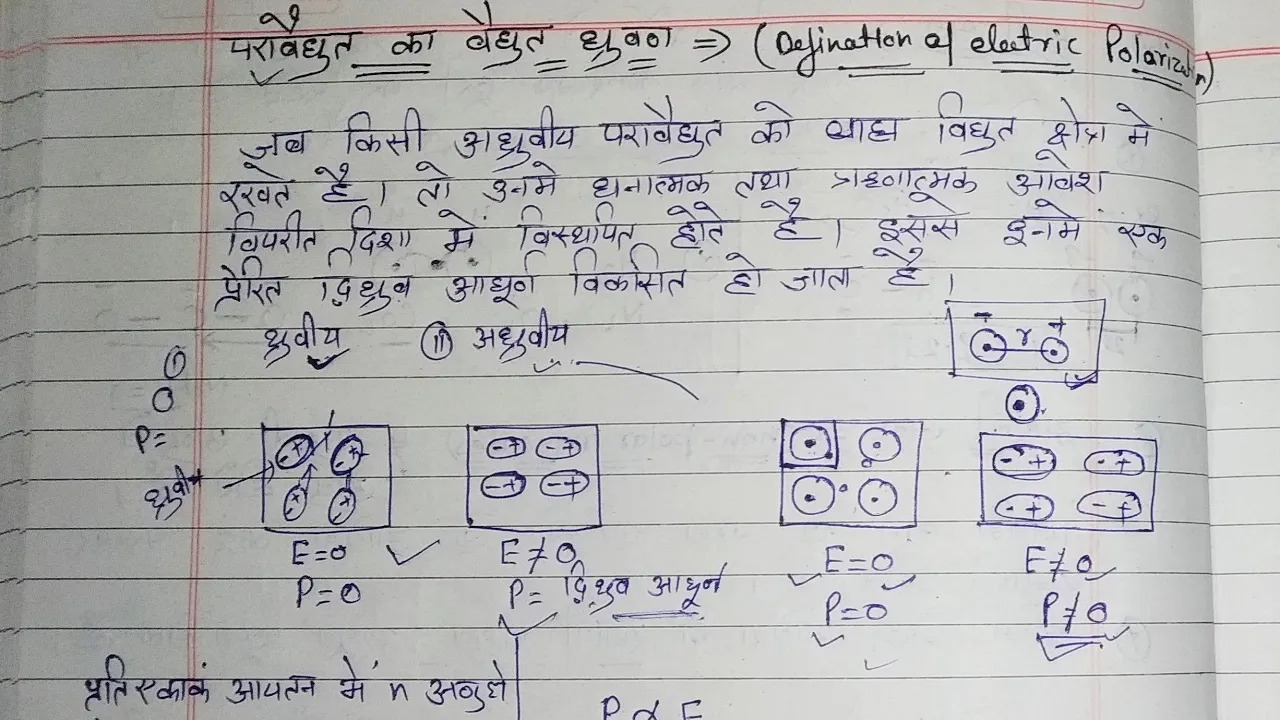 परावैद्युत का वैद्युत ध्रुवण => (Defination of electric Polarization)
जब किसी अध्रुवीय परावैद्युत को बाह्य विधुत क्षेत्र मे
रखते है। तो उनमे धनात्मक तथा ऋणात्मक आवेश
विपरीत दिशा में विस्थापित होते है। इससे इनमे एक
प्रेरित द्विध्रुव आघूर्ण विकसित हो जाता है।
① ध्रुवीय ② अध्रुवीय
- r +
P=
ध्रुवीय
E=0 E≠0 E=0 E≠0
P=0 P= द्विध्रुव आघूर्ण P=0 P≠0
प्रति एकाकं आयतन मे n अणु हो
P ∝ E